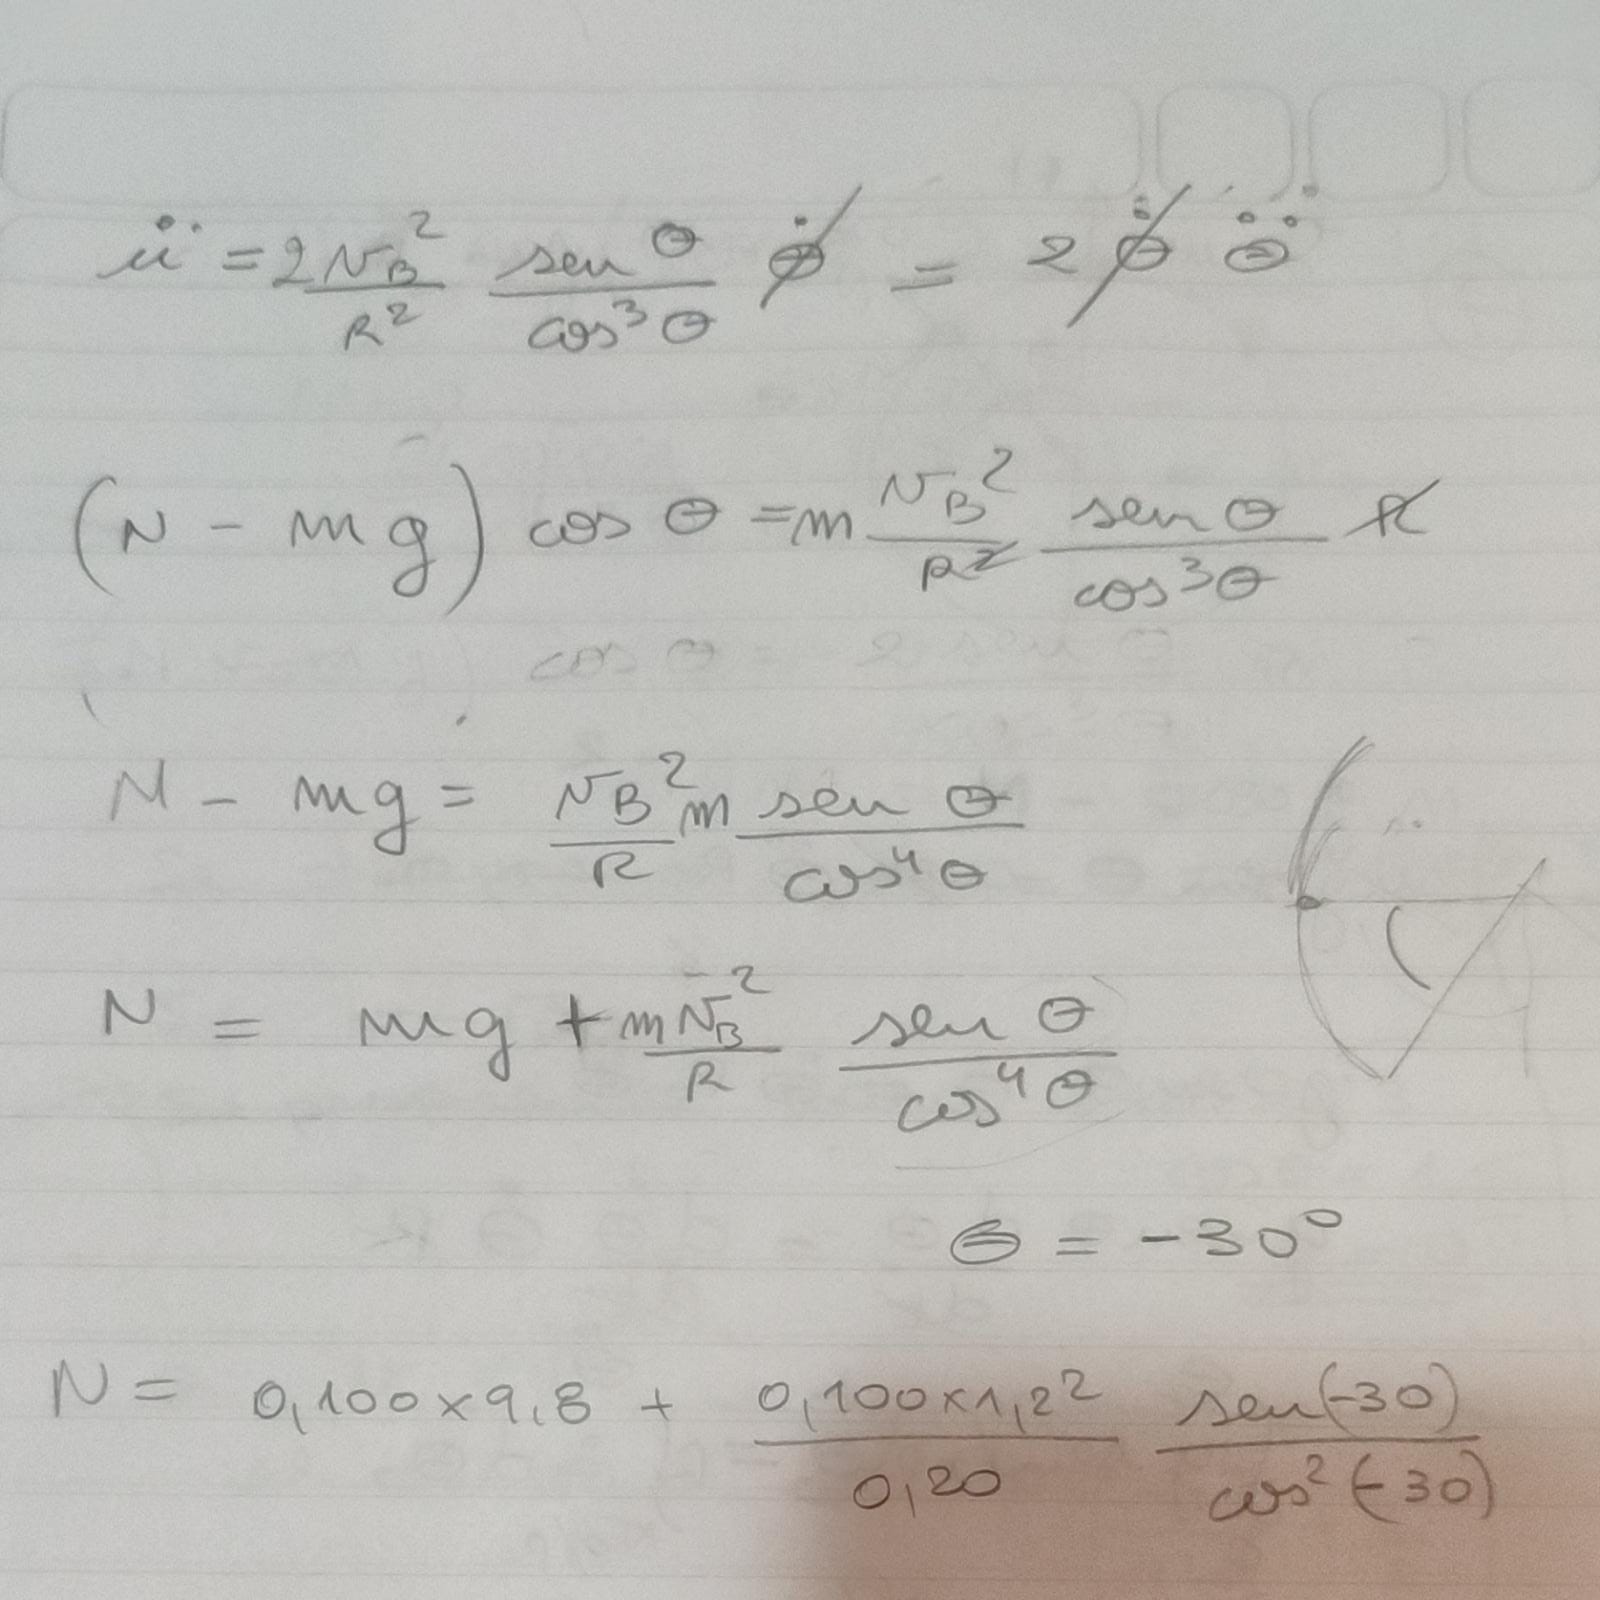 ü = 2 v_B² / R² sen θ / cos³ θ θ̇ = 2 θ̇ θ̈
(N - mg) cos θ = m v_B² / R² sen θ / cos³ θ R
N - mg = v_B² / R m sen θ / cos⁴ θ
N = mg + m v_B² / R sen θ / cos⁴ θ
θ = -30°
N = 0,100 x 9,8 + 0,100 x 1,2² / 0,20 sen(-30) / cos² (-30)